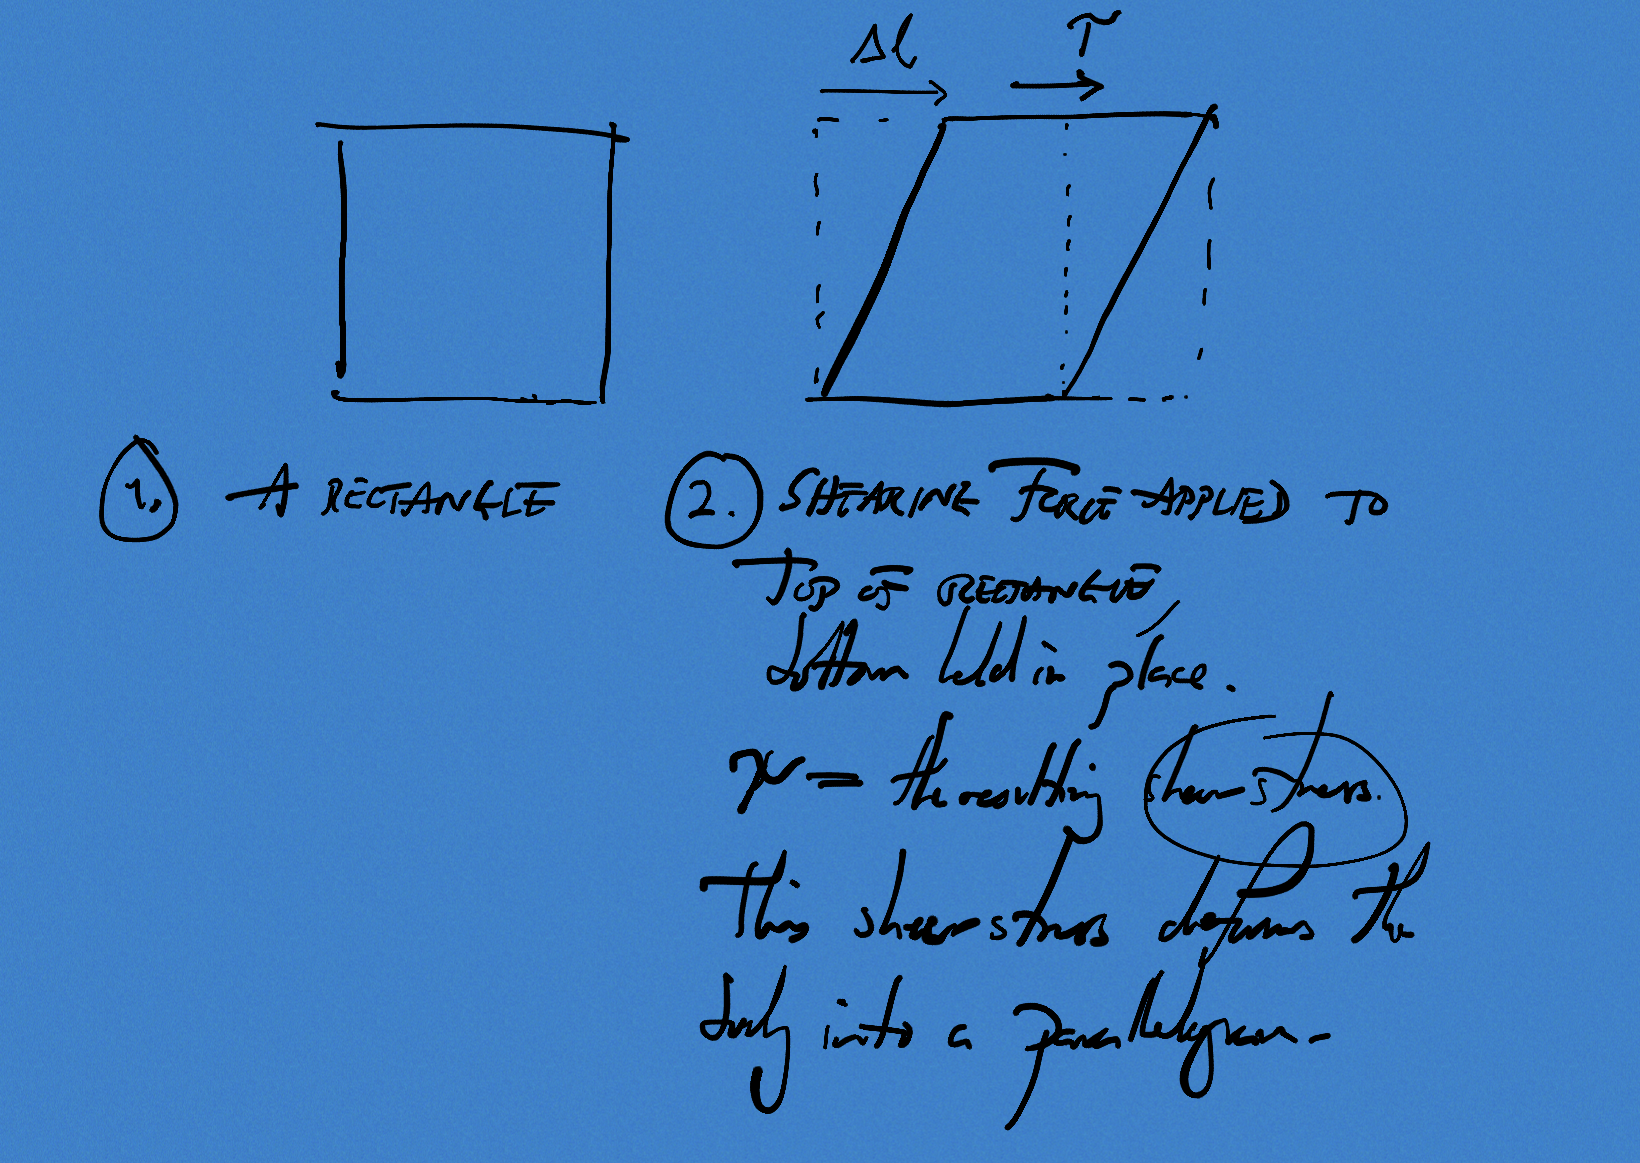 Δl
τ
1. A RECTANGLE
2. SHEARING FORCE APPLIED TO
TOP OF RECTANGLE,
bottom held in place.
τ = the resulting shear stress.
This shear stress deforms the
body into a parallelogram.